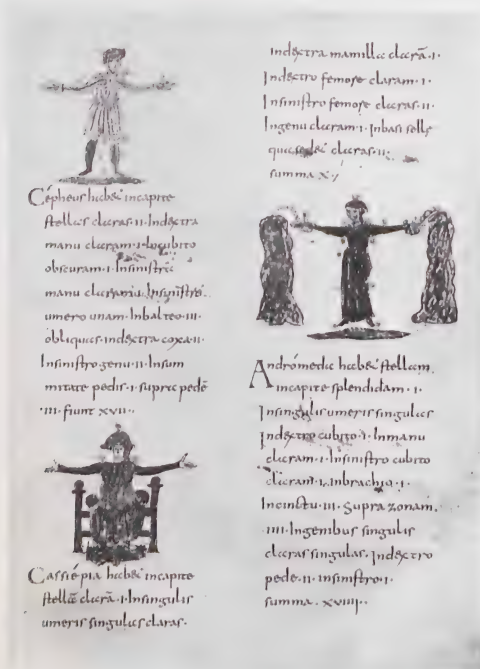 Cepheus habet in capite
stellas claras·II·In dextra
manu claram·I·In cubito
obscuram·I·In sinistra
manu claram·I·In sinistro
umero unam·In balteo·III·
obliquas·In dextra coxa·II·
In sinistro genu·II·In sum
mitate pedis·I·supra pedē
·III·fiunt XVII·
Cassiepia habet in capite
stellā clarā·I·In singulis
umeris singulas claras·
In dextra mamilla clarā·I·
In dextro femore claram·I·
In sinistro femore claras·II·
In genu claram·I·In basi selle
qua sedet claras·II·
summa X·
Andromedia habet stellam
in capite splendidam·I·
In singulis umeris singulas
In dextro cubito·I·In manu
claram·I·In sinistro cubito
claram·I·In brachio·I·
In cinctu·III·Supra zonam·
IIII·In genibus singulis
claras singulas·In dextro
pede·II·In sinistro·I·
summa·XVIIII·